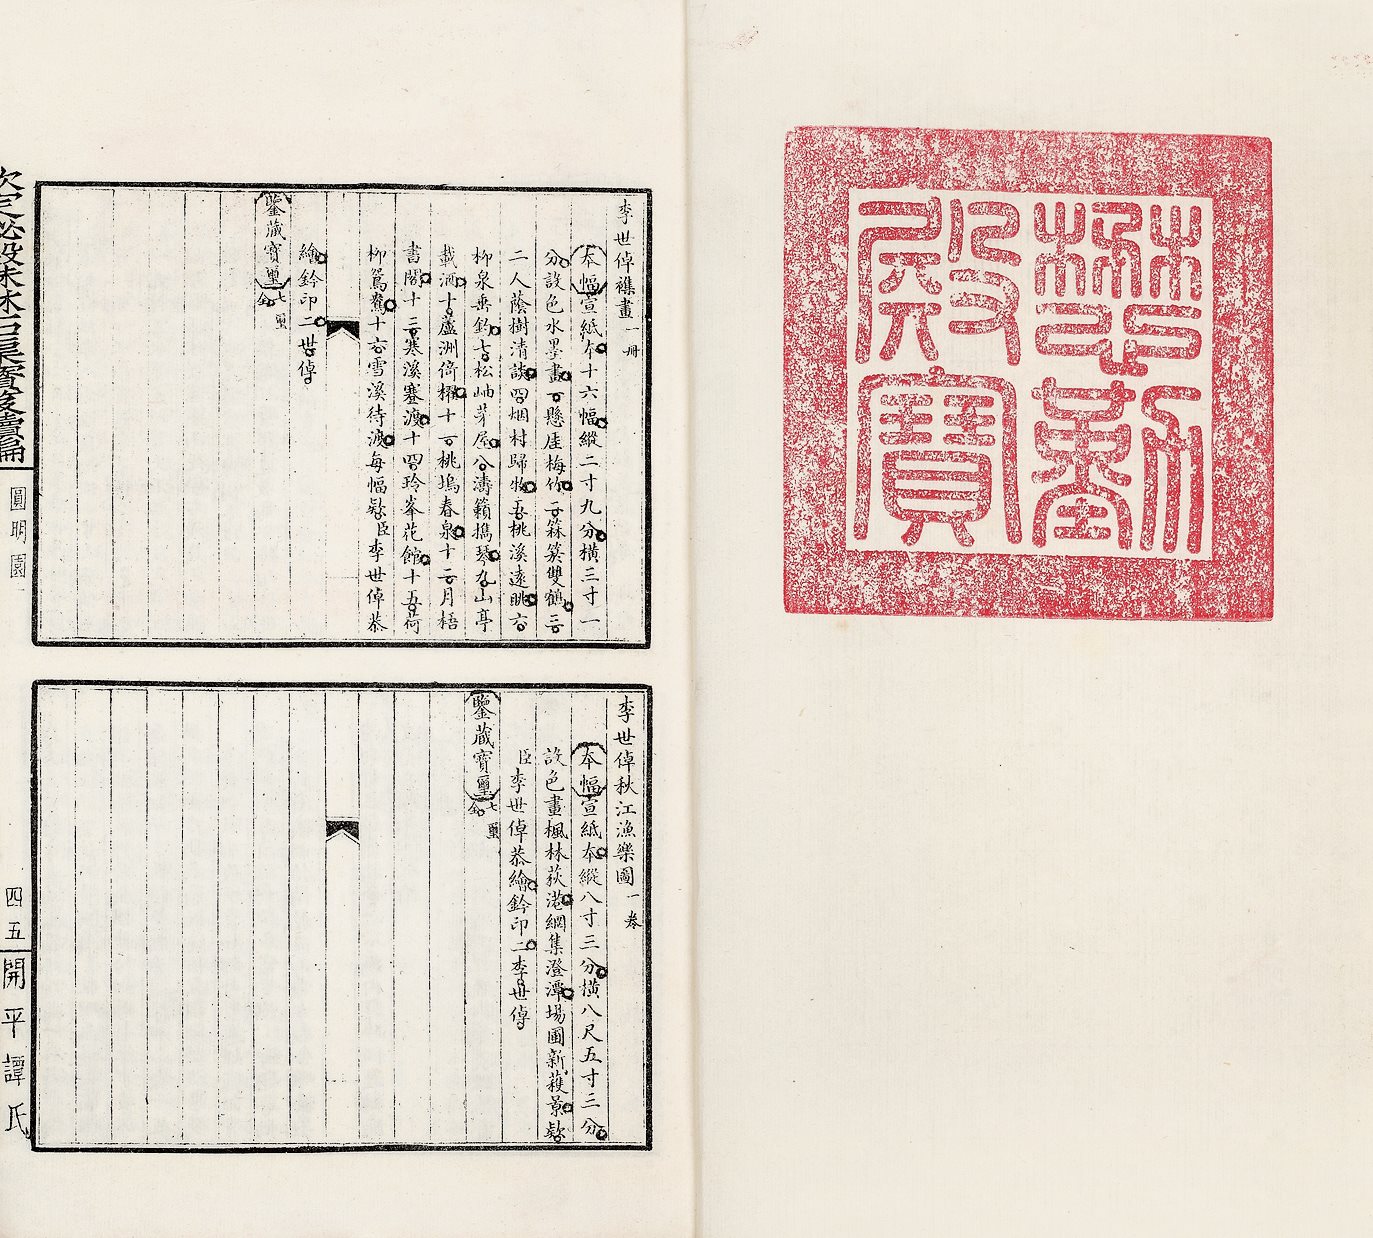 懋勤
殿寶
李世倬襍畫一冊
本幅宣紙本十六幅縱二寸九分橫三寸一
分設色水墨畫一懸厓梅竹二箖箊雙鶴三
二人蔭樹清談四烟村歸牧五桃溪遠眺六
柳泉垂釣七松岫茅屋八濤籟攜琴九山亭
載酒十蘆洲倚櫂十一桃塢春泉十二月梧
書閣十三寒溪蹇渡十四玲峯花館十五荷
柳鴛鴦十六雪溪待渡每幅欵臣李世倬恭
繪鈐印二世倬
鑒藏寶璽七璽全
李世倬秋江漁樂圖一卷
本幅宣紙本縱八寸三分橫八尺五寸三分
設色畫楓林荻港網集澄潭場圃新穫景欵
臣李世倬恭繪鈐印二李世倬
鑒藏寶璽七璽全
欽定秘殿珠林石渠寶笈續編
圓明園
四五
開平譚氏